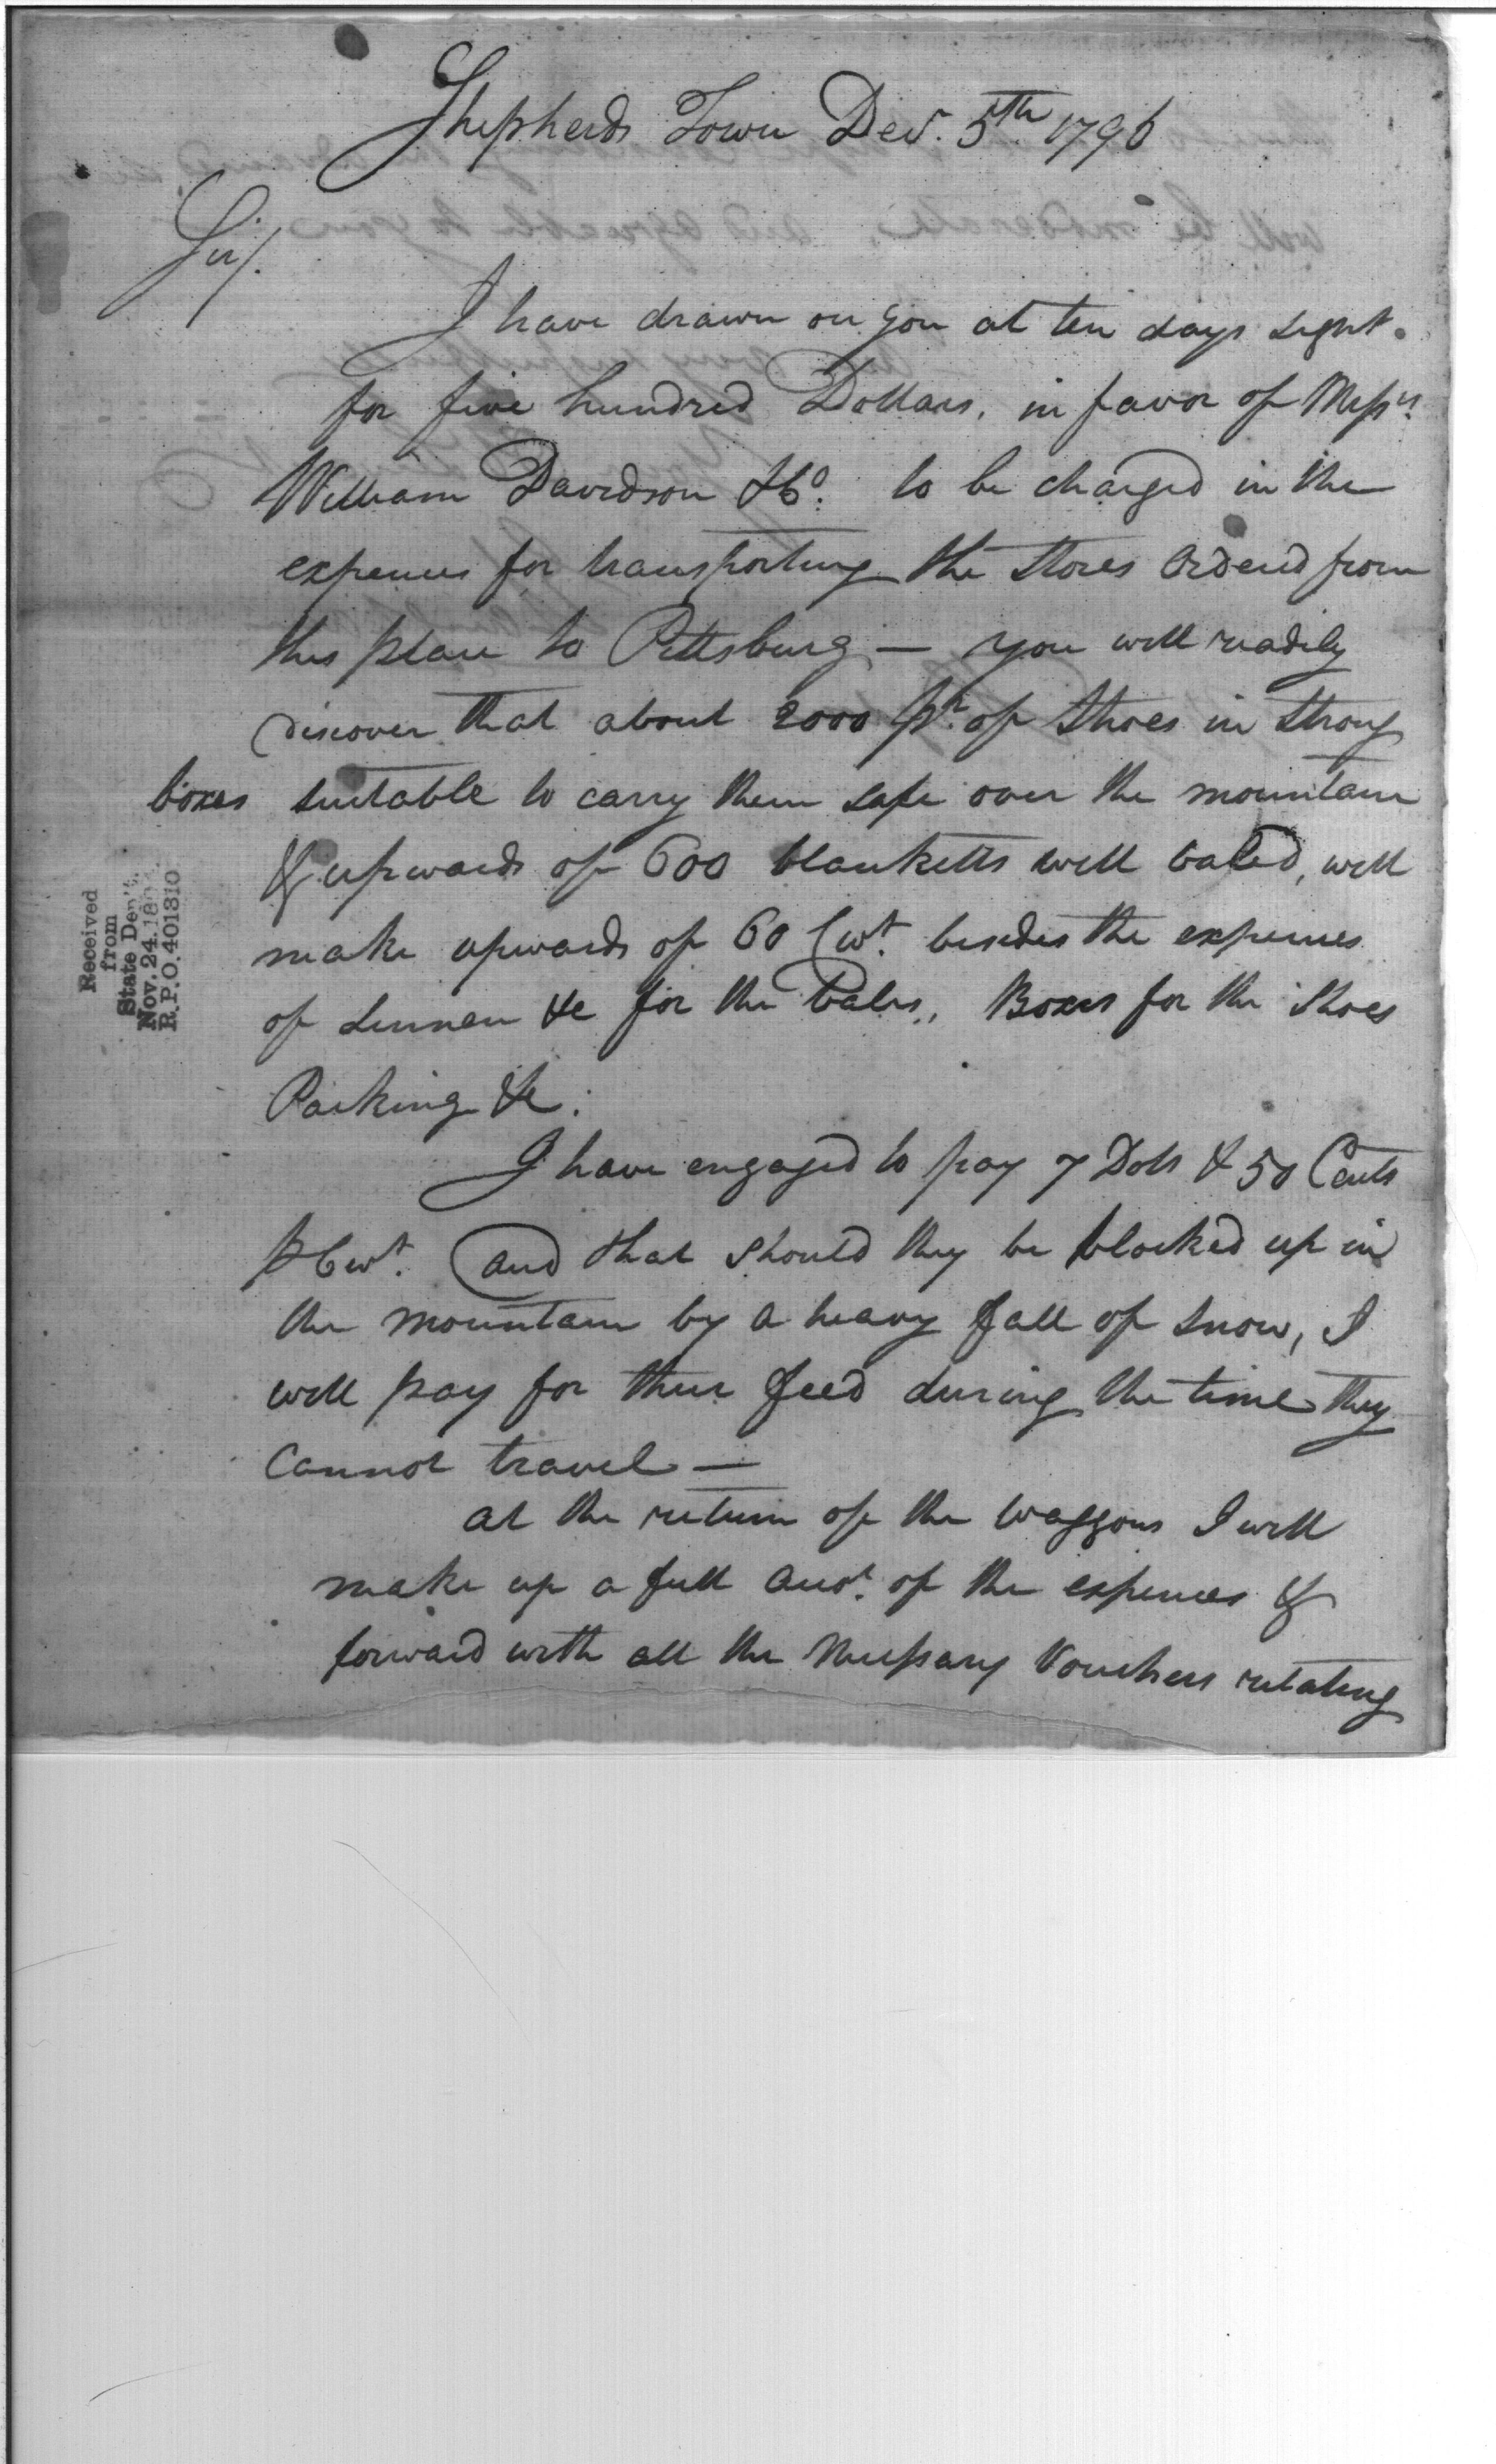 Shepherds Town Decr. 5th 1796
Sir/.
I have drawn on you at ten days sight.
for five hundred Dollars, in favor of Messrs.
William Davidson & Co. to be charged in the
expences for transporting the Stores Ordered from
this place to Pittsburg — you will readily
discover that about 2000 pr. of Shoes in strong
boxes suitable to carry them safe over the mountain
& upwards of 600 blanketts well baled, will
make upwards of 60 Cwt. besides the expences
of Linnen &c for the bales, Boxes for the Shoes
Packing &c.
I have engaged to pay 7 Dolls & 50 Cents
P Cwt. and that should they be blocked up in
the mountain by a heavy fall of snow, I
will pay for their feed during the time they
cannot travel —
at the return of the waggons I will
make up a full Acct. of the expences &
forward with all the Necessary Vouchers relating
Received
from
State Dep't.
Nov. 24. 18
R.P.O. 401310